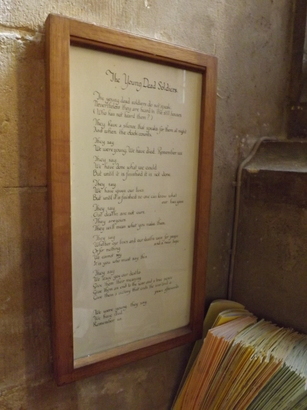 The Young Dead Soldiers
The young dead soldiers do not speak.
Nevertheless they are heard in the still houses
(Who has not heard them?)
They have a silence that speaks for them at night
And when the clock counts.
They say,
We were young. We have died. Remember us.
They say,
We have done what we could
But until it is finished it is not done.
They say,
We have given our lives
But until it is finished no one can know what
our lives gave.
They say,
Our deaths are not ours
They are yours
They will mean what you make them.
They say,
Whether our lives and our deaths were for peace
or for nothing
We cannot say
It is you who must say this.
They say,
We leave you our deaths
Give them their meaning
Give them an end to the war and a true
Give them a victory that ends the war and a
peace afterwards
We were young, they say
We have died
Remember us